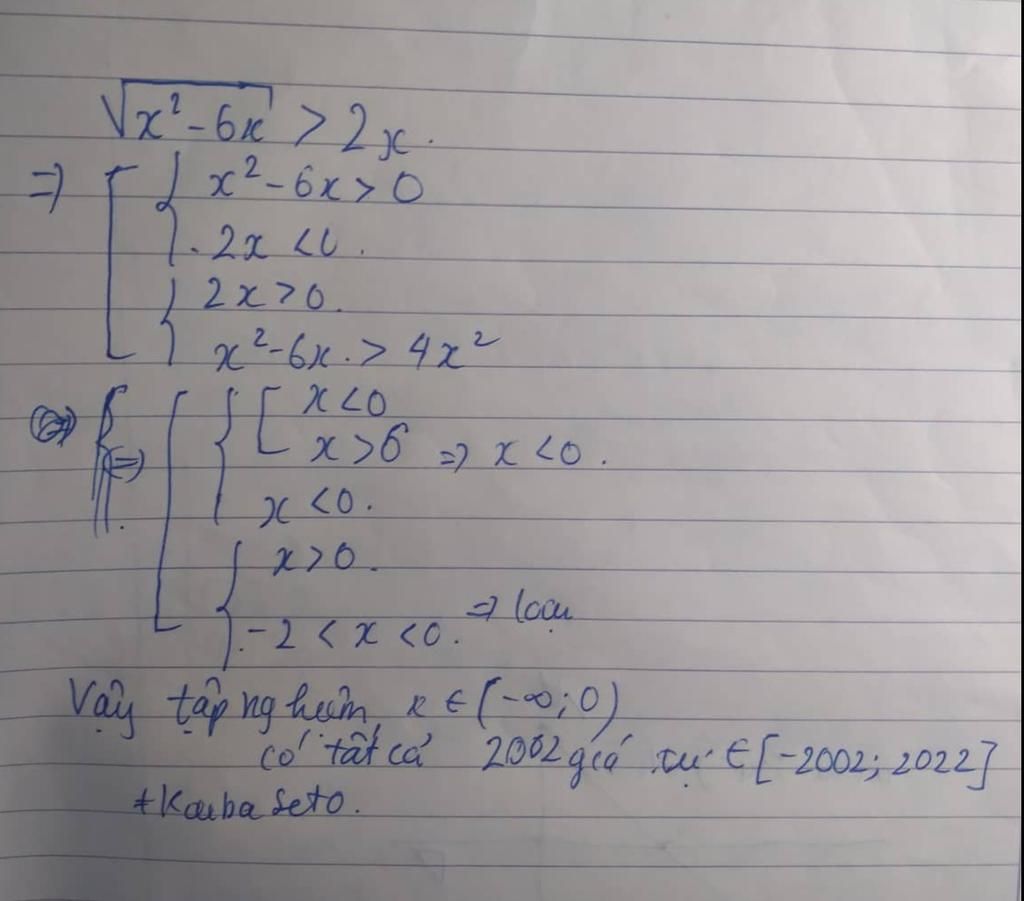 √x² - 6x > 2x.
=> [ { x² - 6x > 0
2x < 0.
{ 2x > 0.
x² - 6x > 4x²
<=> [ { [ x < 0
x > 6 => x < 0.
x < 0.
{ x > 0.
-2 < x < 0. => loại
Vậy tập nghiệm x ∈ (-∞; 0)
có tất cả 2002 giá trị ∈ [-2002; 2022]
+Kaiba Seto.